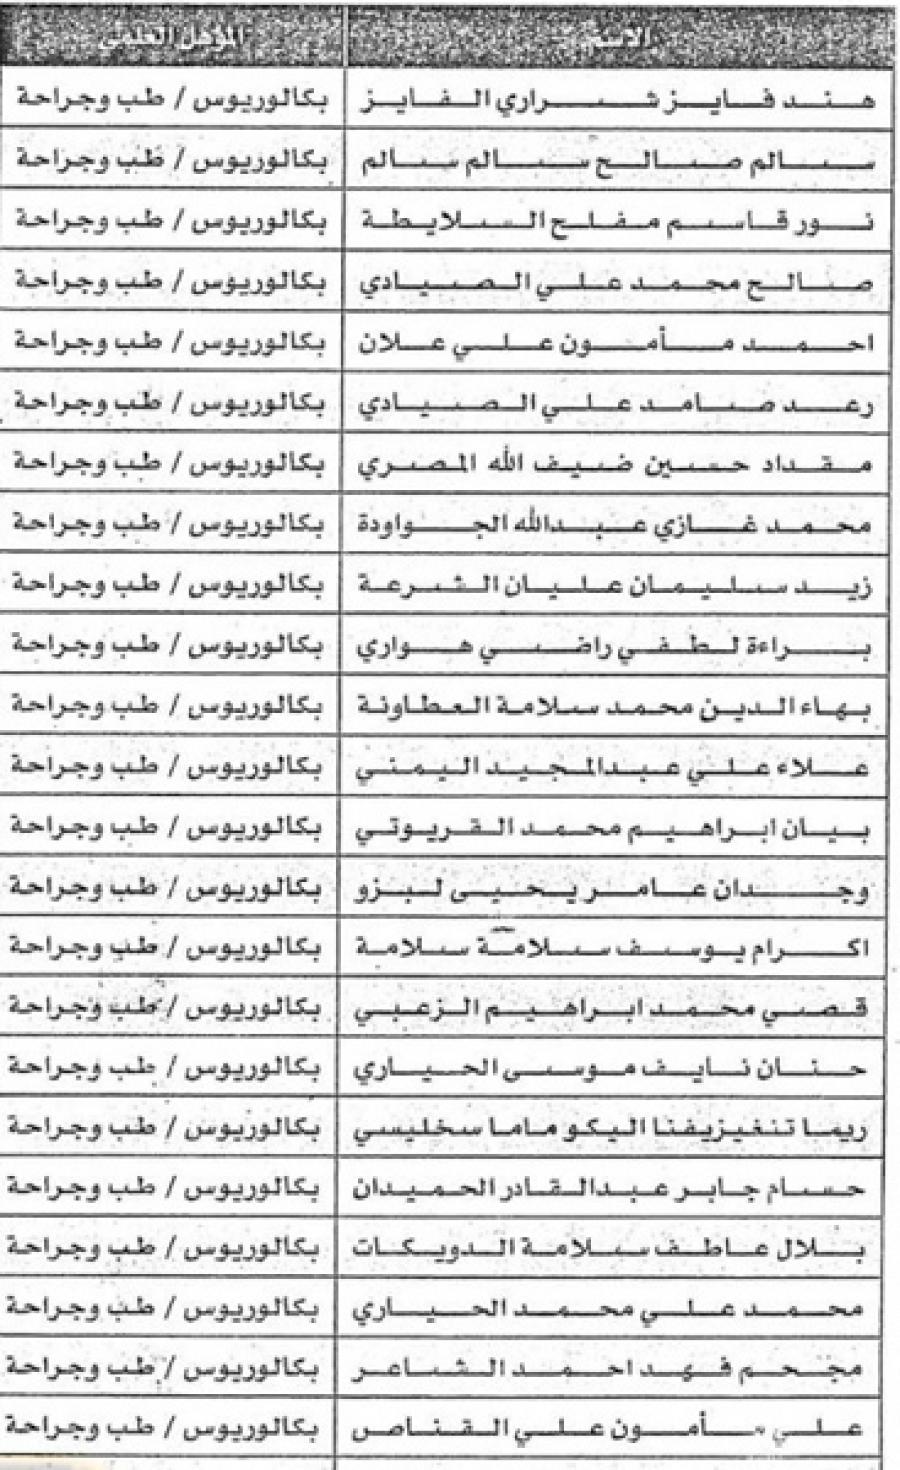 الاسم المؤهل العلمي
هند فايز شراري الفايز بكالوريوس / طب وجراحة
سالم صالح سالم سالم بكالوريوس / طب وجراحة
نور قاسم مفلح السلايطة بكالوريوس / طب وجراحة
صالح محمد علي الصيادي بكالوريوس / طب وجراحة
احمد مأمون علي علان بكالوريوس / طب وجراحة
رعد صامد علي الصيادي بكالوريوس / طب وجراحة
مقداد حسين ضيف الله المصري بكالوريوس / طب وجراحة
محمد غازي عبدالله الجواودة بكالوريوس / طب وجراحة
زيد سليمان عليان الشرعة بكالوريوس / طب وجراحة
براءة لطفي راضي هواري بكالوريوس / طب وجراحة
بهاء الدين محمد سلامة العطاونة بكالوريوس / طب وجراحة
علاء علي عبدالمجيد اليمني بكالوريوس / طب وجراحة
بيان ابراهيم محمد القريوتي بكالوريوس / طب وجراحة
وجدان عامر يحيى لبزو بكالوريوس / طب وجراحة
اكرام يوسف سلامة سلامة بكالوريوس / طب وجراحة
قصي محمد ابراهيم الزعبي بكالوريوس / طب وجراحة
حنان نايف موسى الحياري بكالوريوس / طب وجراحة
ريما تنغيزيفنا اليكو ماما سخليسي بكالوريوس / طب وجراحة
حسام جابر عبدالقادر الحميدان بكالوريوس / طب وجراحة
بلال عاطف سلامة الدويكات بكالوريوس / طب وجراحة
محمد علي محمد الحياري بكالوريوس / طب وجراحة
مجحم فهد احمد الشاعر بكالوريوس / طب وجراحة
علي مأمون علي القناص بكالوريوس / طب وجراحة